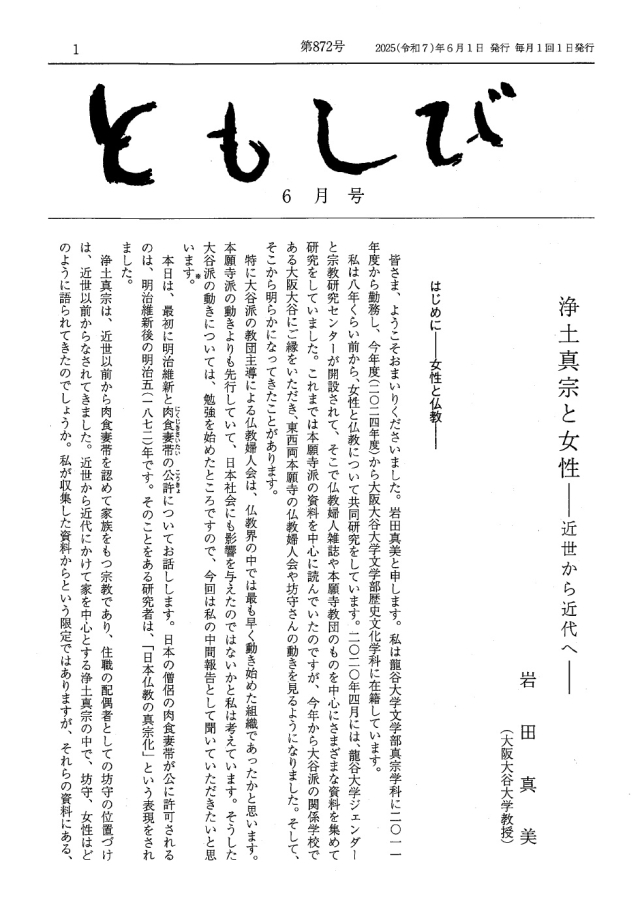 1
第872号
2025(令和7)年6月1日 発行 毎月1回1日発行
ともしび
6月号
浄土真宗と女性――近世から近代へ――
岩田真美
(大阪大谷大学教授)
はじめに――女性と仏教――
皆さま、ようこそおまいりくださいました。岩田真美と申します。私は龍谷大学文学部真宗学科に二〇一一
年度から勤務し、今年度(二〇二四年度)から大阪大谷大学文学部歴史文化学科に在籍しています。
私は八年くらい前から、女性と仏教について共同研究をしています。二〇二〇年四月には、龍谷大学ジェンダー
と宗教研究センターが開設されて、そこで仏教婦人雑誌や本願寺教団のものを中心にさまざまな資料を集めて
研究をしていました。これまでは本願寺派の資料を中心に読んでいたのですが、今年から大谷派の関係学校で
ある大阪大谷にご縁をいただき、東西両本願寺の仏教婦人会や坊守さんの動きを見るようになりました。そして、
そこから明らかになってきたことがあります。
特に大谷派の教団主導による仏教婦人会は、仏教界の中では最も早く動き始めた組織であったかと思います。
本願寺派の動きよりも先行していて、日本社会にも影響を与えたのではないかと私は考えています。そうした
大谷派の動きについては、勉強を始めたところですので、今回は私の中間報告として聞いていただきたいと思
います。*
本日は、最初に明治維新と肉食妻帯の公許についてお話しします。日本の僧侶の肉食妻帯が公に許可される
のは、明治維新後の明治五(一八七二)年です。そのことをある研究者は、「日本仏教の真宗化」という表現をされ
ました。
浄土真宗は、近世以前から肉食妻帯を認めて家族をもつ宗教であり、住職の配偶者としての坊守の位置づけ
は、近世以前からなされてきました。近世から近代にかけて家を中心とする浄土真宗の中で、坊守、女性はど
のように語られてきたのでしょうか。私が収集した資料からという限定ではありますが、それらの資料にある、